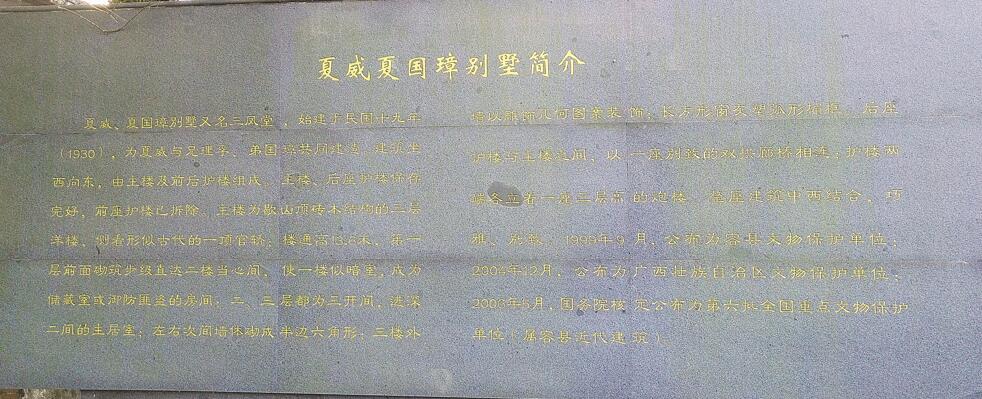 夏威夏国璋别墅简介
夏威、夏国璋别墅又名三凤堂，始建于民国十九年
（1930），为夏威与兄理孚、弟国璋共同建造。建筑坐
西向东，由主楼及前后护楼组成。主楼、后座护楼保存
完好，前座护楼已拆除。主楼为歇山顶砖木结构的三层
洋楼，侧看形似古代的一顶官轿；楼通高13.6米，第一
层前面砌筑步级直达二楼当心间，使一楼似暗室，成为
储藏室或御防匪盗的房间；二、三层都为三开间，进深
二间的主居室；左右次间墙体砌成半边六角形；三楼外
墙以雕饰几何图案装饰；长方形窗灰塑弧形楣框。后座
护楼与主楼之间，以一座别致的双拱廊桥相连；护楼两
端各立着一座三层高的炮楼。整座建筑中西结合，巧
雅、别致。1999年9月，公布为容县文物保护单位；
2004年12月，公布为广西壮族自治区文物保护单位；
2006年5月，国务院核定公布为第六批全国重点文物保护
单位（属容县近代建筑）。